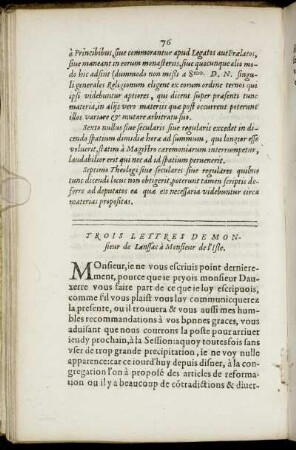 76
à Principibus, siue commorantur apud Legatos aut Prælatos,
siue maneant in eorum monasterus, siue quocunque alio mo-
do hic adsint (dummodo non missi a Smo. D. N. singu-
li generales Religionum eligent ex eorum ordine ternos qui
ipsi videbuntur aptiores, qui dicent super præsenti tunc
materia, in alijs vero materiis quæ post occurrent poterunt
illos variare & mutare arbitratu suo.
Sexto nullus siue secularis siue regularis excedet in di-
cendo spatium dimidiæ horæ ad summum, qui longior esse
voluerit, statim à Magistro ceremoniarum interrumpetur,
laudabilior erit qui nec ad id spatium peruenerit.
Septimo Theologi siue seculares siue regulares quibus
tunc dicendi locus non obtigerit, poterunt tamen scriptis de-
ferre ad deputatos ea quæ eis necessaria videbuntur circa
materias propositas.
TROIS LETTRES DE MON-
sieur de Lanssac à Monsieur de l'Isle.
Monsieur, ie ne vous escriuis point derniere-
ment, pource que ie pryois monsieur Dau-
zerre vous faire part de ce que ie luy escripuois,
comme s'il vous plaist vous luy communicquerez
la presente, ou il trouuera & vous aussi mes hum-
bles recommandations à vos bonnes graces, vous
aduisant que nous courrons la poste pour arriuer
ieudy prochain, à la Session à quoy toutesfois sans
vser de trop grande precipitation, ie ne voy nulle
apparence: car ce iourd'huy depuis disner, à la con-
gregation l'on à proposé des articles de reforma-
tion ou il y a beaucoup de cõtradictiõs & diuer-